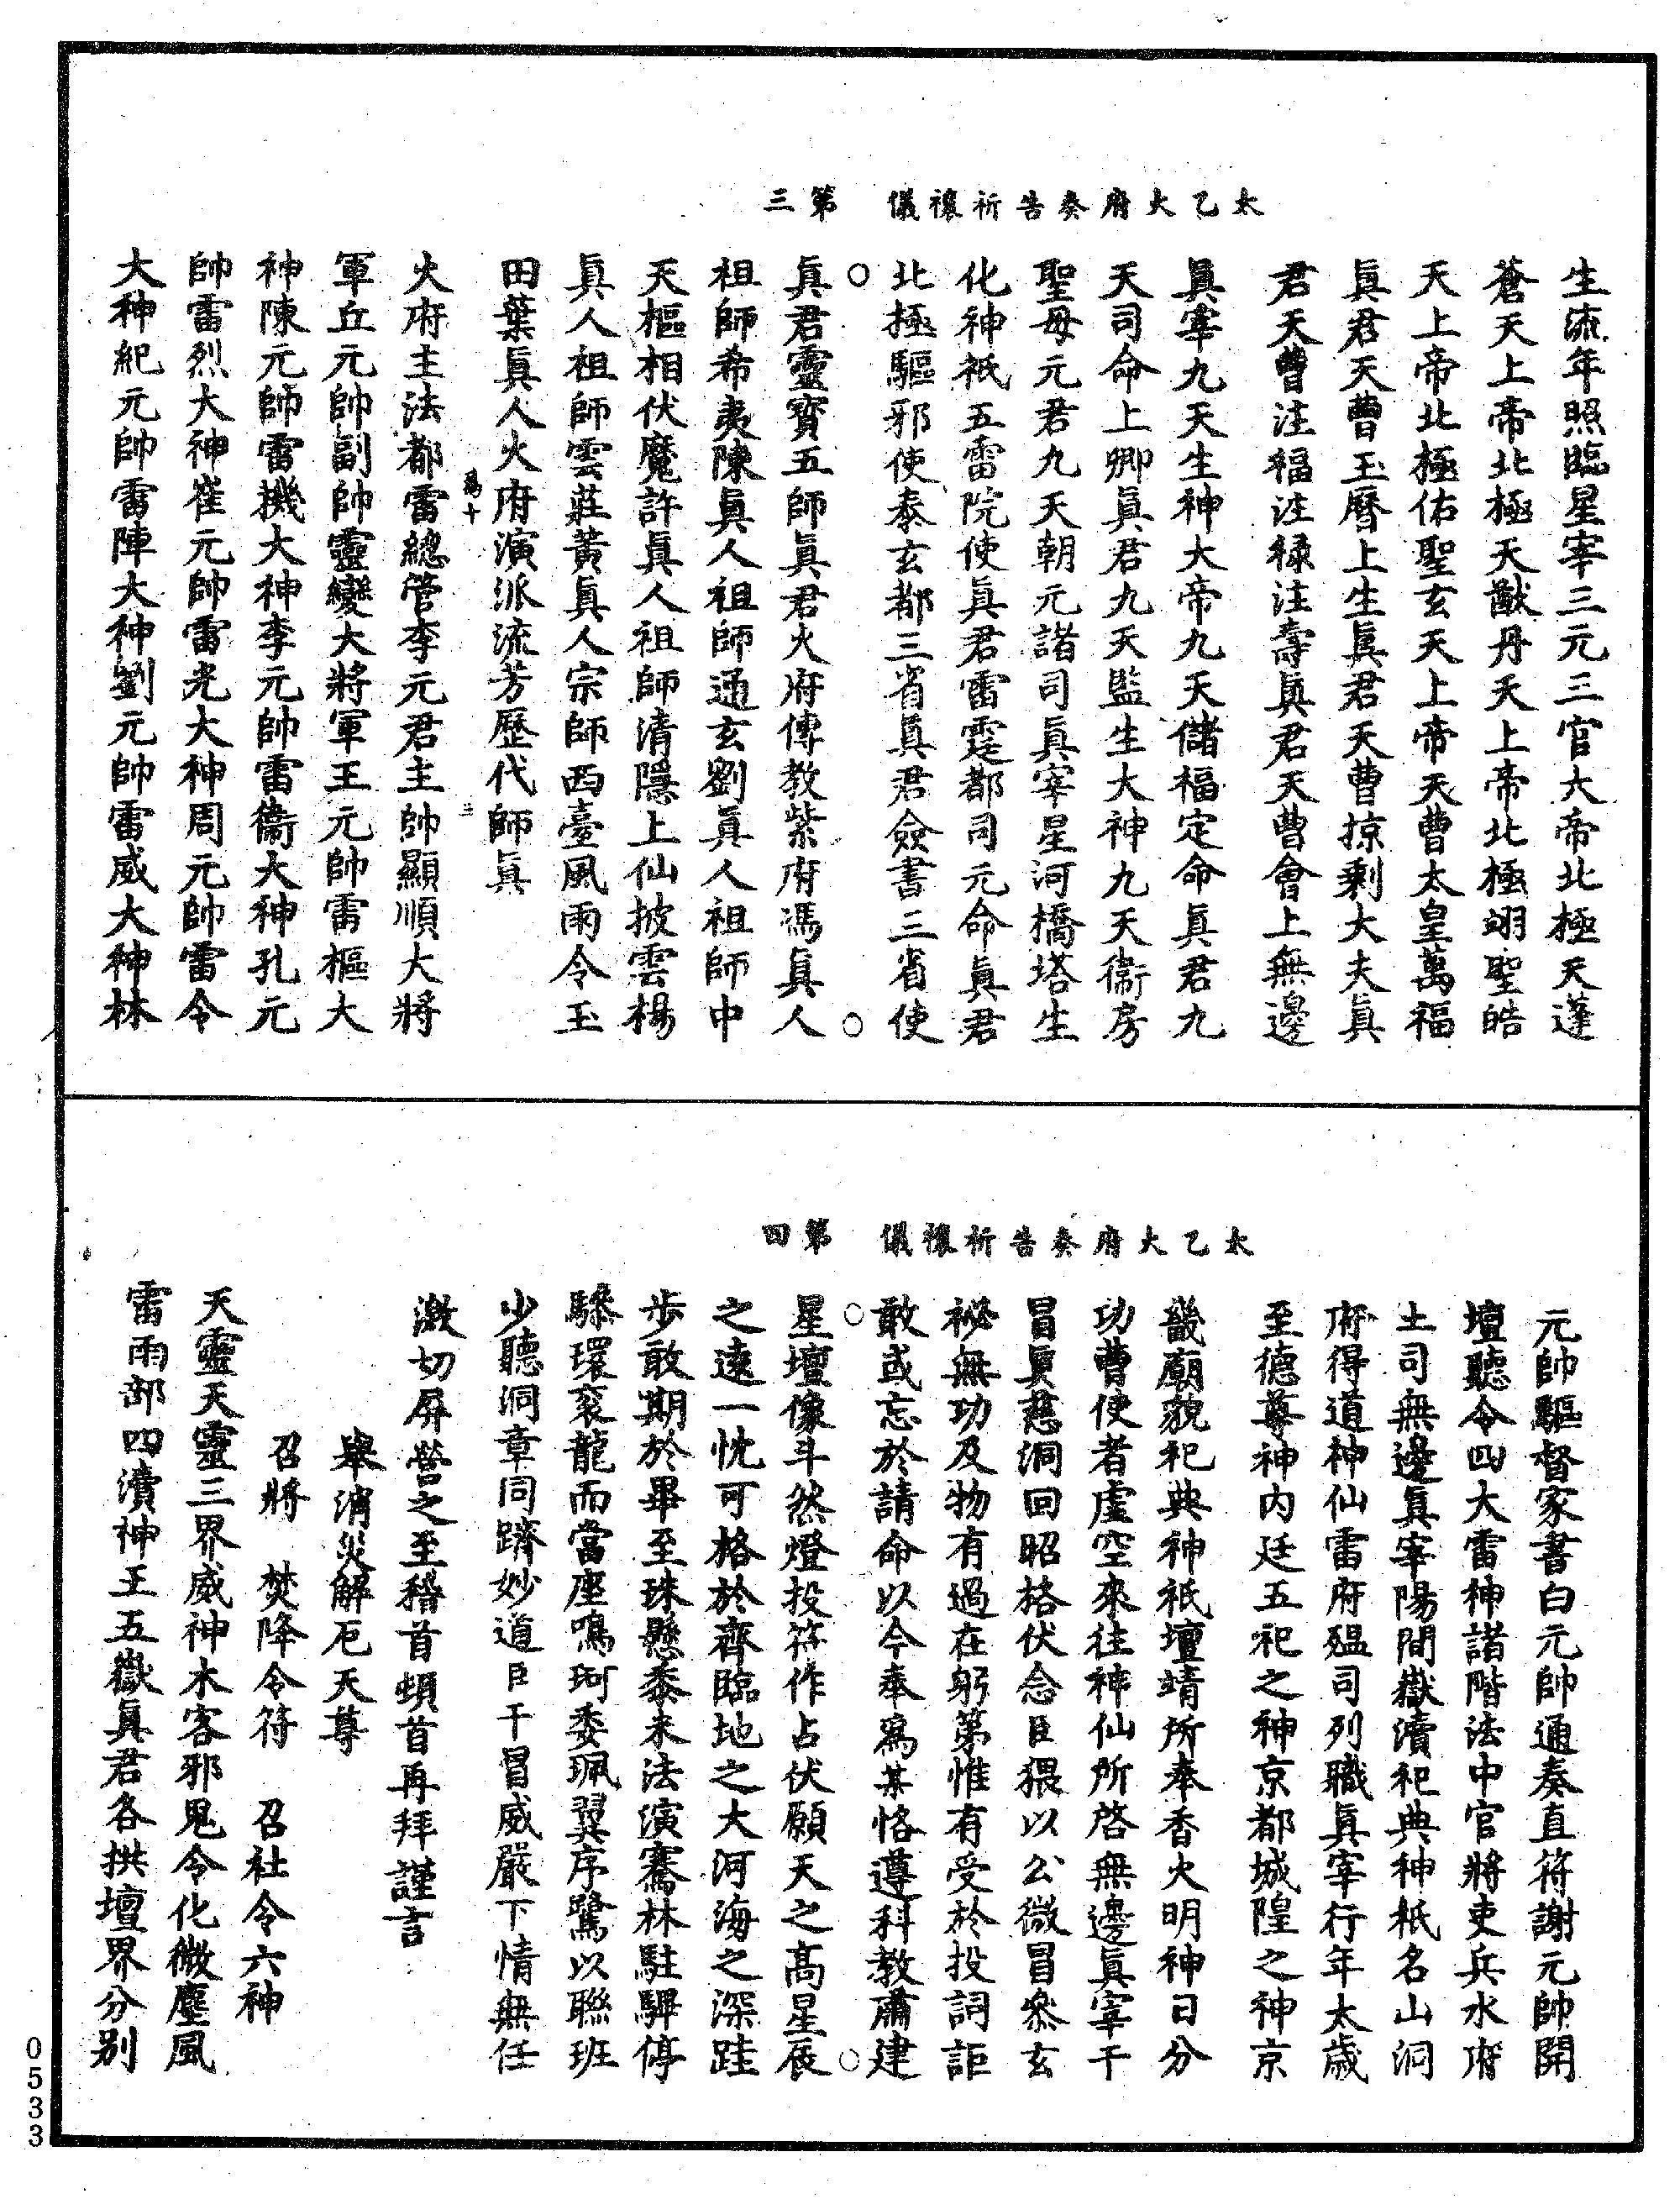 太乙火府奏告祈禳儀　第三
生流年照臨星宰三元三官大帝北極天蓬
蒼天上帝北極天猷丹天上帝北極翊聖皓
天上帝北極佑聖玄天上帝天曹太皇萬福
眞君天曹玉曆上生眞君天曹掠剩大夫眞
君天曹注福注祿注壽眞君天曹會上無邊
眞宰九天生神大帝九天儲福定命眞君九
天司命上卿眞君九天監生大神九天衞房
聖母元君九天朝元諸司眞宰星河橋塔生
化神祇五雷院使眞君雷霆都司元命眞君
北極驅邪使泰玄都三省眞君僉書三省使
眞君靈寶五師眞君火府傳教紫府馮眞人
祖師希夷陳眞人祖師通玄劉眞人祖師中
天樞相伏魔許眞人祖師清隱上仙披雲楊
眞人祖師雲莊黃眞人宗師西臺風雨令玉
田葉眞人火府演派流芳歷代師眞
爲十　三
火府主法都雷總管李元君主帥顯順大將
軍丘元帥副帥靈變大將軍王元帥雷樞大
神陳元帥雷機大神李元帥雷衞大神孔元
帥雷烈大神崔元帥雷光大神周元帥雷令
大神紀元帥雷陣大神劉元帥雷威大神林
太乙火府奏告祈禳儀　第四
元帥驅督家書白元帥通奏直符謝元帥開
壇聽令四大雷神諸階法中官將吏兵水府
土司無邊眞宰陽間嶽瀆祀典神祇名山洞
府得道神仙雷府瘟司列職眞宰行年太歲
至德尊神內廷五祀之神京都城隍之神京
畿廟貌祀典神祇壇靖所奉香火明神日分
功曹使者虛空來往神仙所啓無邊眞宰干
冒眞慈洞回昭格伏念臣猥以公微冒叅玄
祕無功及物有過在躬第惟有受於投詞詎
敢或忘於請命以今奉爲某恪遵科教肅建
星壇像斗然燈投符作占伏願天之高星辰
之遠一忱可格於齊臨地之大河海之深跬
步敢期於畢至珠懸黍米法演騫林駐驆停
驂環衮龍而當座鳴珂委珮翼序鷺以聯班
少聽洞章同躋妙道臣干冒威嚴下情無任
激切屏營之至稽首頓首再拜謹言
舉消災解厄天尊
召將　焚降令符　召社令六神
天靈天靈三界威神木客邪鬼令化微塵風
雷雨部四瀆神王五嶽眞君各拱壇界分別
0533